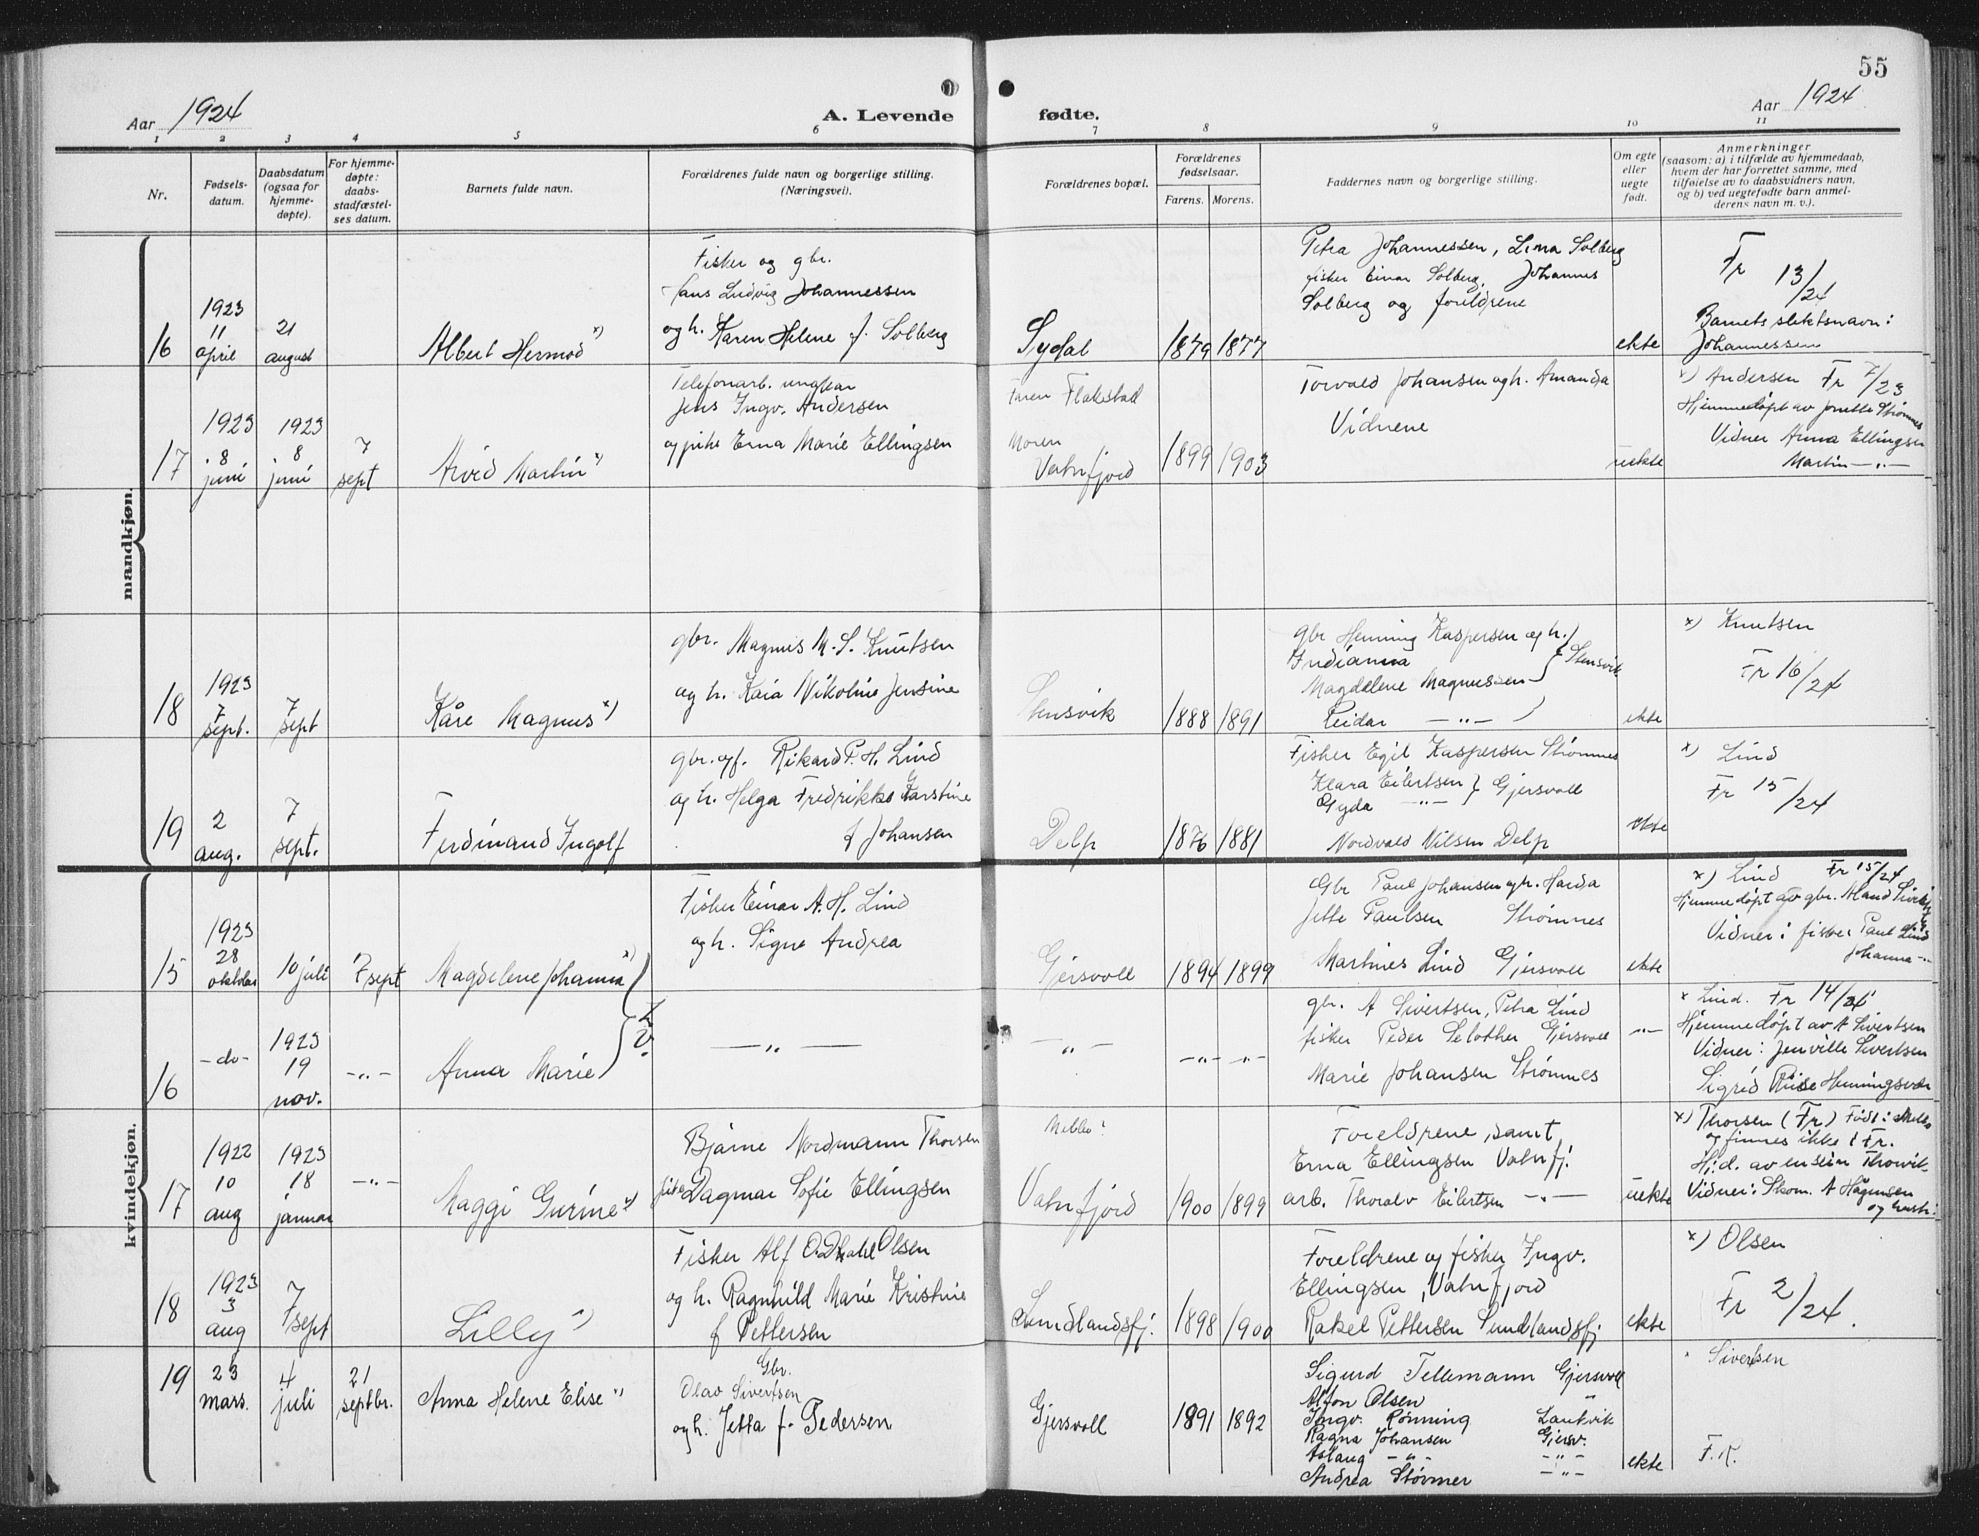 55
Aar 1924
A. Levende
fødte.
Aar 1924
1 2 3 4 5 6 7 8 9 10 11
Nr.
Fødsels-
datum.
Daabsdatum
(ogsaa for
hjemme-
døpte).
For hjemme-
døpte:
daabs-
stadfæstel-
ses datum.
Barnets fulde navn.
Forældrenes fulde navn og borgerlige stilling.
(Næringsvei).
Forældrenes bopæl.
Forældrenes
fødselsaar.
Farens. Morens.
Faddernes navn og borgerlige stilling.
Om egte
eller
uegte
født.
Anmerkninger
(saasom: a) i tilfælde av hjemmedaab,
hvem der har forrettet samme, med
tilføielse av to daabsvidners navn,
og b) ved uegtefødte barn anmel-
derens navn m. v.).
mandkjøn.
16
1923
11
april
21
august
Albert Hermod x)
Fisker og gbr.
Hans Ludvig Johannessen
og h. Karen Helene f. Solberg
Sydal
1879 1877
Petra Johannessen, Lina Solberg
fisker Einar Solberg, Johannes
Solberg og foreldrene
ekte
Fr 13/24
Barnets slektsnavn:
Johannessen
17
1923
8
juni
1923
8
juni
7
sept
Arvid Martin x)
Telefonarb. ungkar
Jens Ingv. Andersen
og pike Erna Marie Ellingsen
Faren Flakstad
Moren
Vatnfjord
1899 1903
Torvald Johansen og h. Amanda
Vidnene
uekte
x) Andersen Fr 7/23
Hjemmedøpt av Jonette Strømnes
Vidner Anna Ellingsen
Martin -"-
18
1923
7
sept.
7
sept
Kåre Magnus x)
gbr. Magnus M. S. Knutsen
og h. Kaia Nikoline Jensine
Stensvik
1888 1891
gbr Henning Kaspersen og h.
Indianna
Magdelene Magnussen
Reidar -"-
Stensvik
ekte
x) Knutsen
Fr 16/24
19
2
aug.
7
sept.
Ferdinand Ingolf
gbr. og f. Rikard P. H. Lind
og h. Helga Fredrikke Karstine
f Johansen
Delp
1876 1881
Fisker Egil Kaspersen Strømnes
Klara Eilertsen
Gyda -"-
Gjersvoll
Nordvald Nilsen Delp
ekte
x) Lind
Fr 15/24
kvindekjøn.
15
1923
28
oktober
10 juli
7 sept
Magdelene Johanna x)
Fisker Einar A. H. Lind
og h. Signe Andrea
Gjersvoll
1894 1899
Gbr Paul Johansen og h. Harda
Jette Paulsen Strømnes
Martines Lind Gjersvoll
ekte
x) Lind Fr 15/24
Hjemmedøpt av gbr.
Vidner: fisker Paul Lind
Johanna -"-
16
-do-
1923
19
nov.
-"-
Anna Marie
-"-
-"-
-"- -"-
gbr. A Sivertsen, Petra Lind
fisker Peder Gjersvoll
Marie Johansen Strømnes
-"-
x Lind. Fr 14/24
Hjemmedøpt av A Sivertsen
Vidner: Jenville Sivertsen
Sigrid Riise Henningsvær
17
1922
10
aug
1923
18
januar
-"-
Maggi Gurine x)
Bjarne Nordmann Thorsen
pike Dagmar Sofie Ellingsen
Vatnfjord
1900 1899
Foreldrene, samt
Erna Ellingsen Vatnfj.
arb. Thoralv Eilertsen -"-
uekte
x) Thorsen (Fr) Født:
og finnes ikke i Fr.
Hj.d. av
Vidner: Skom. A Hågensen
og hustr:
18
1923
3
aug
7
sept
Lilly x)
Fisker Alf Olsen
og h. Ragnhild Marie Kristine
f Pettersen
Sundlandsfj.
1898 1900
Foreldrene og fisker Ingv.
Ellingsen, Vatnfjord
Rakel Pettersen Sundlandsfj
ekte
x) Olsen
Fr 2/24.
19
23
mars.
4
juli
21
septbr.
Anna Helene Elise x)
Gbr.
Olav Sivertsen
og h. Jetta f. Pedersen
Gjersvoll
1891 1892
Sigurd Tellemann Gjersvoll
Alfon Olsen "
Ingv. Rønning Laukvik
Ragna Johansen Gjersv.
Aslaug -"- -"-
Andrea Størmer -"-
ekte
Sivertsen
F.R.